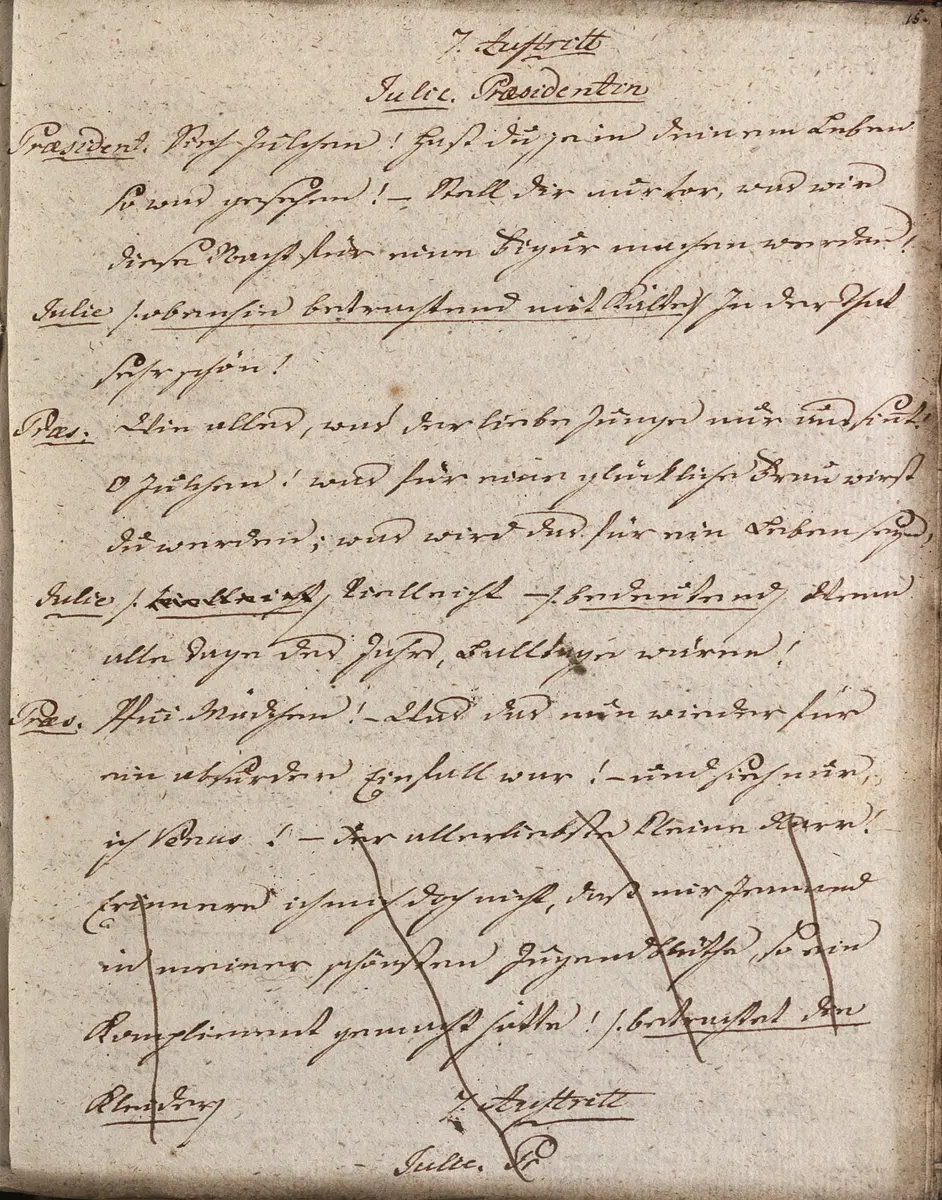 15.
7. Auftritt
Julie. Præsidentin
Præsident. Sieh Julchen! Hast du je in deinem Leben
so was gesehen! – Stell dir nur vor, was wir
diese Nacht für eine Figur machen werden!
Julie /: obenhin betrachtend mit Kälte :/ In der That
sehr schön!
Præs: Wie alles, was der liebe Junge nur aussinnt!
O Julchen! was für eine glückliche Frau wirst
du werden; was wird das für ein Leben seyn,
Julie /: vielleicht :/ Vielleicht – /: bedeutend :/ Wenn
alle Tage des Jahrs, Balltäge wären!
Præs. Pfui Mädchen! – Was das nun wieder für
ein absurder Einfall war! – und sieh nur,
ich Venus! – der allerliebste kleine Narr!
Erinnere ich mich doch nicht, daß mir Jemand
in meiner schönsten Jugendblüthe, so ein
Kompliment gemacht hätte! /: betrachtet die
Kleider :/ 7. Auftritt
Julie. Pr